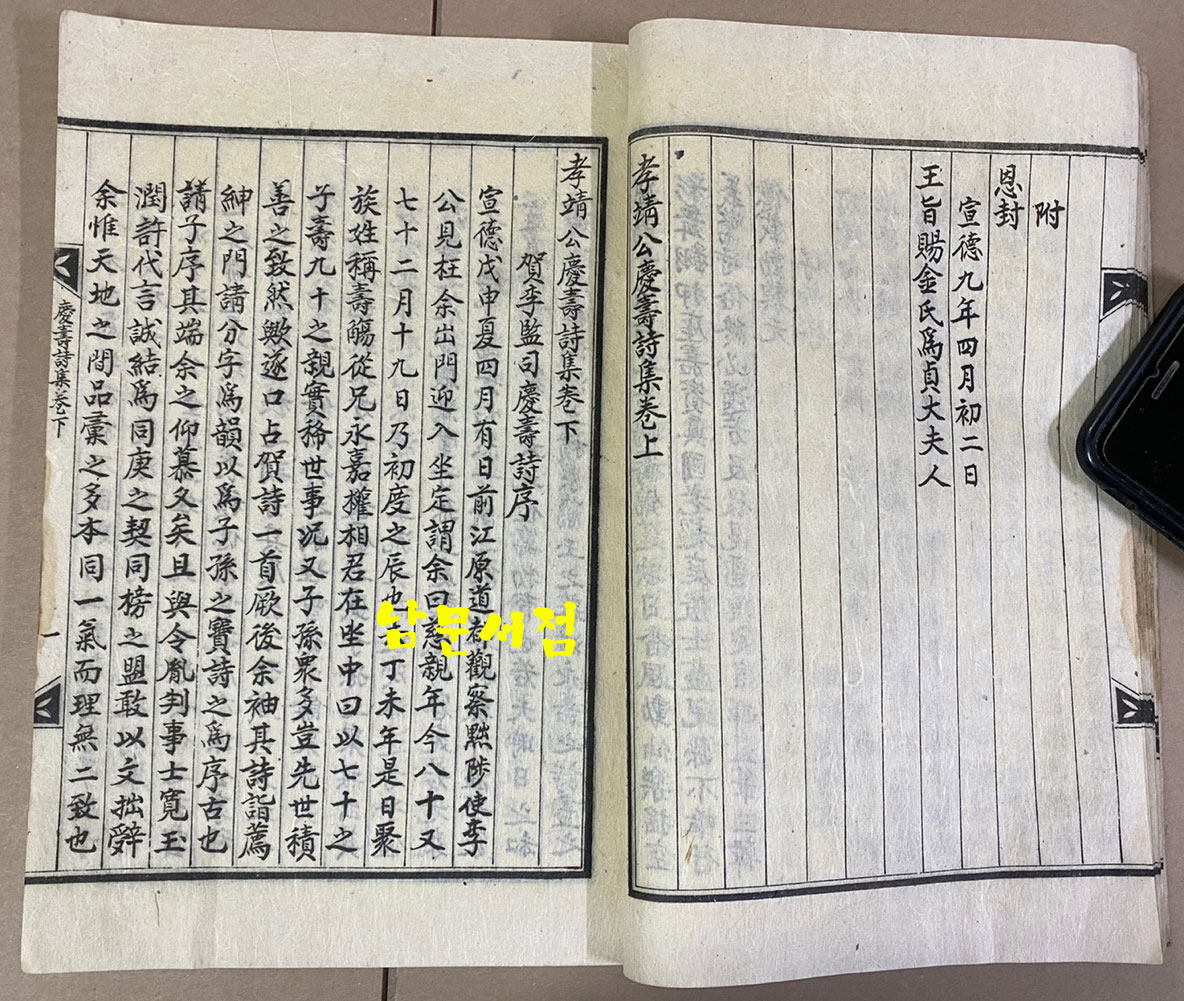 附
恩封
宣德九年四月初二日
王旨賜金氏爲貞大夫人
孝靖公慶壽詩集卷上
孝靖公慶壽詩集卷下
賀李監司慶壽詩序
宣德戊申夏四月有日前江原道都觀察黜陟使李
公見枉余出門迎入坐定謂余曰慈親年今八十又
七十二月十九日乃初度之辰也 丁未年是日聚
族姓稱壽觴從兄永嘉權相君在坐中曰以七十之
子壽九十之親實稀世事况又子孫衆多豈先世積
善之致然歟遂口占賀詩一首厥後余袖其詩詣薦
紳之門請分字爲韻以爲子孫之寶詩之爲序古也
請子序其端余之仰慕久矣且與令胤判事士寬玉
潤許代言誠結爲同庚之契同榜之盟敢以文拙辭
余惟天地之間品彙之多本同一氣而理無二致也
慶壽詩集卷下
一
남문서점